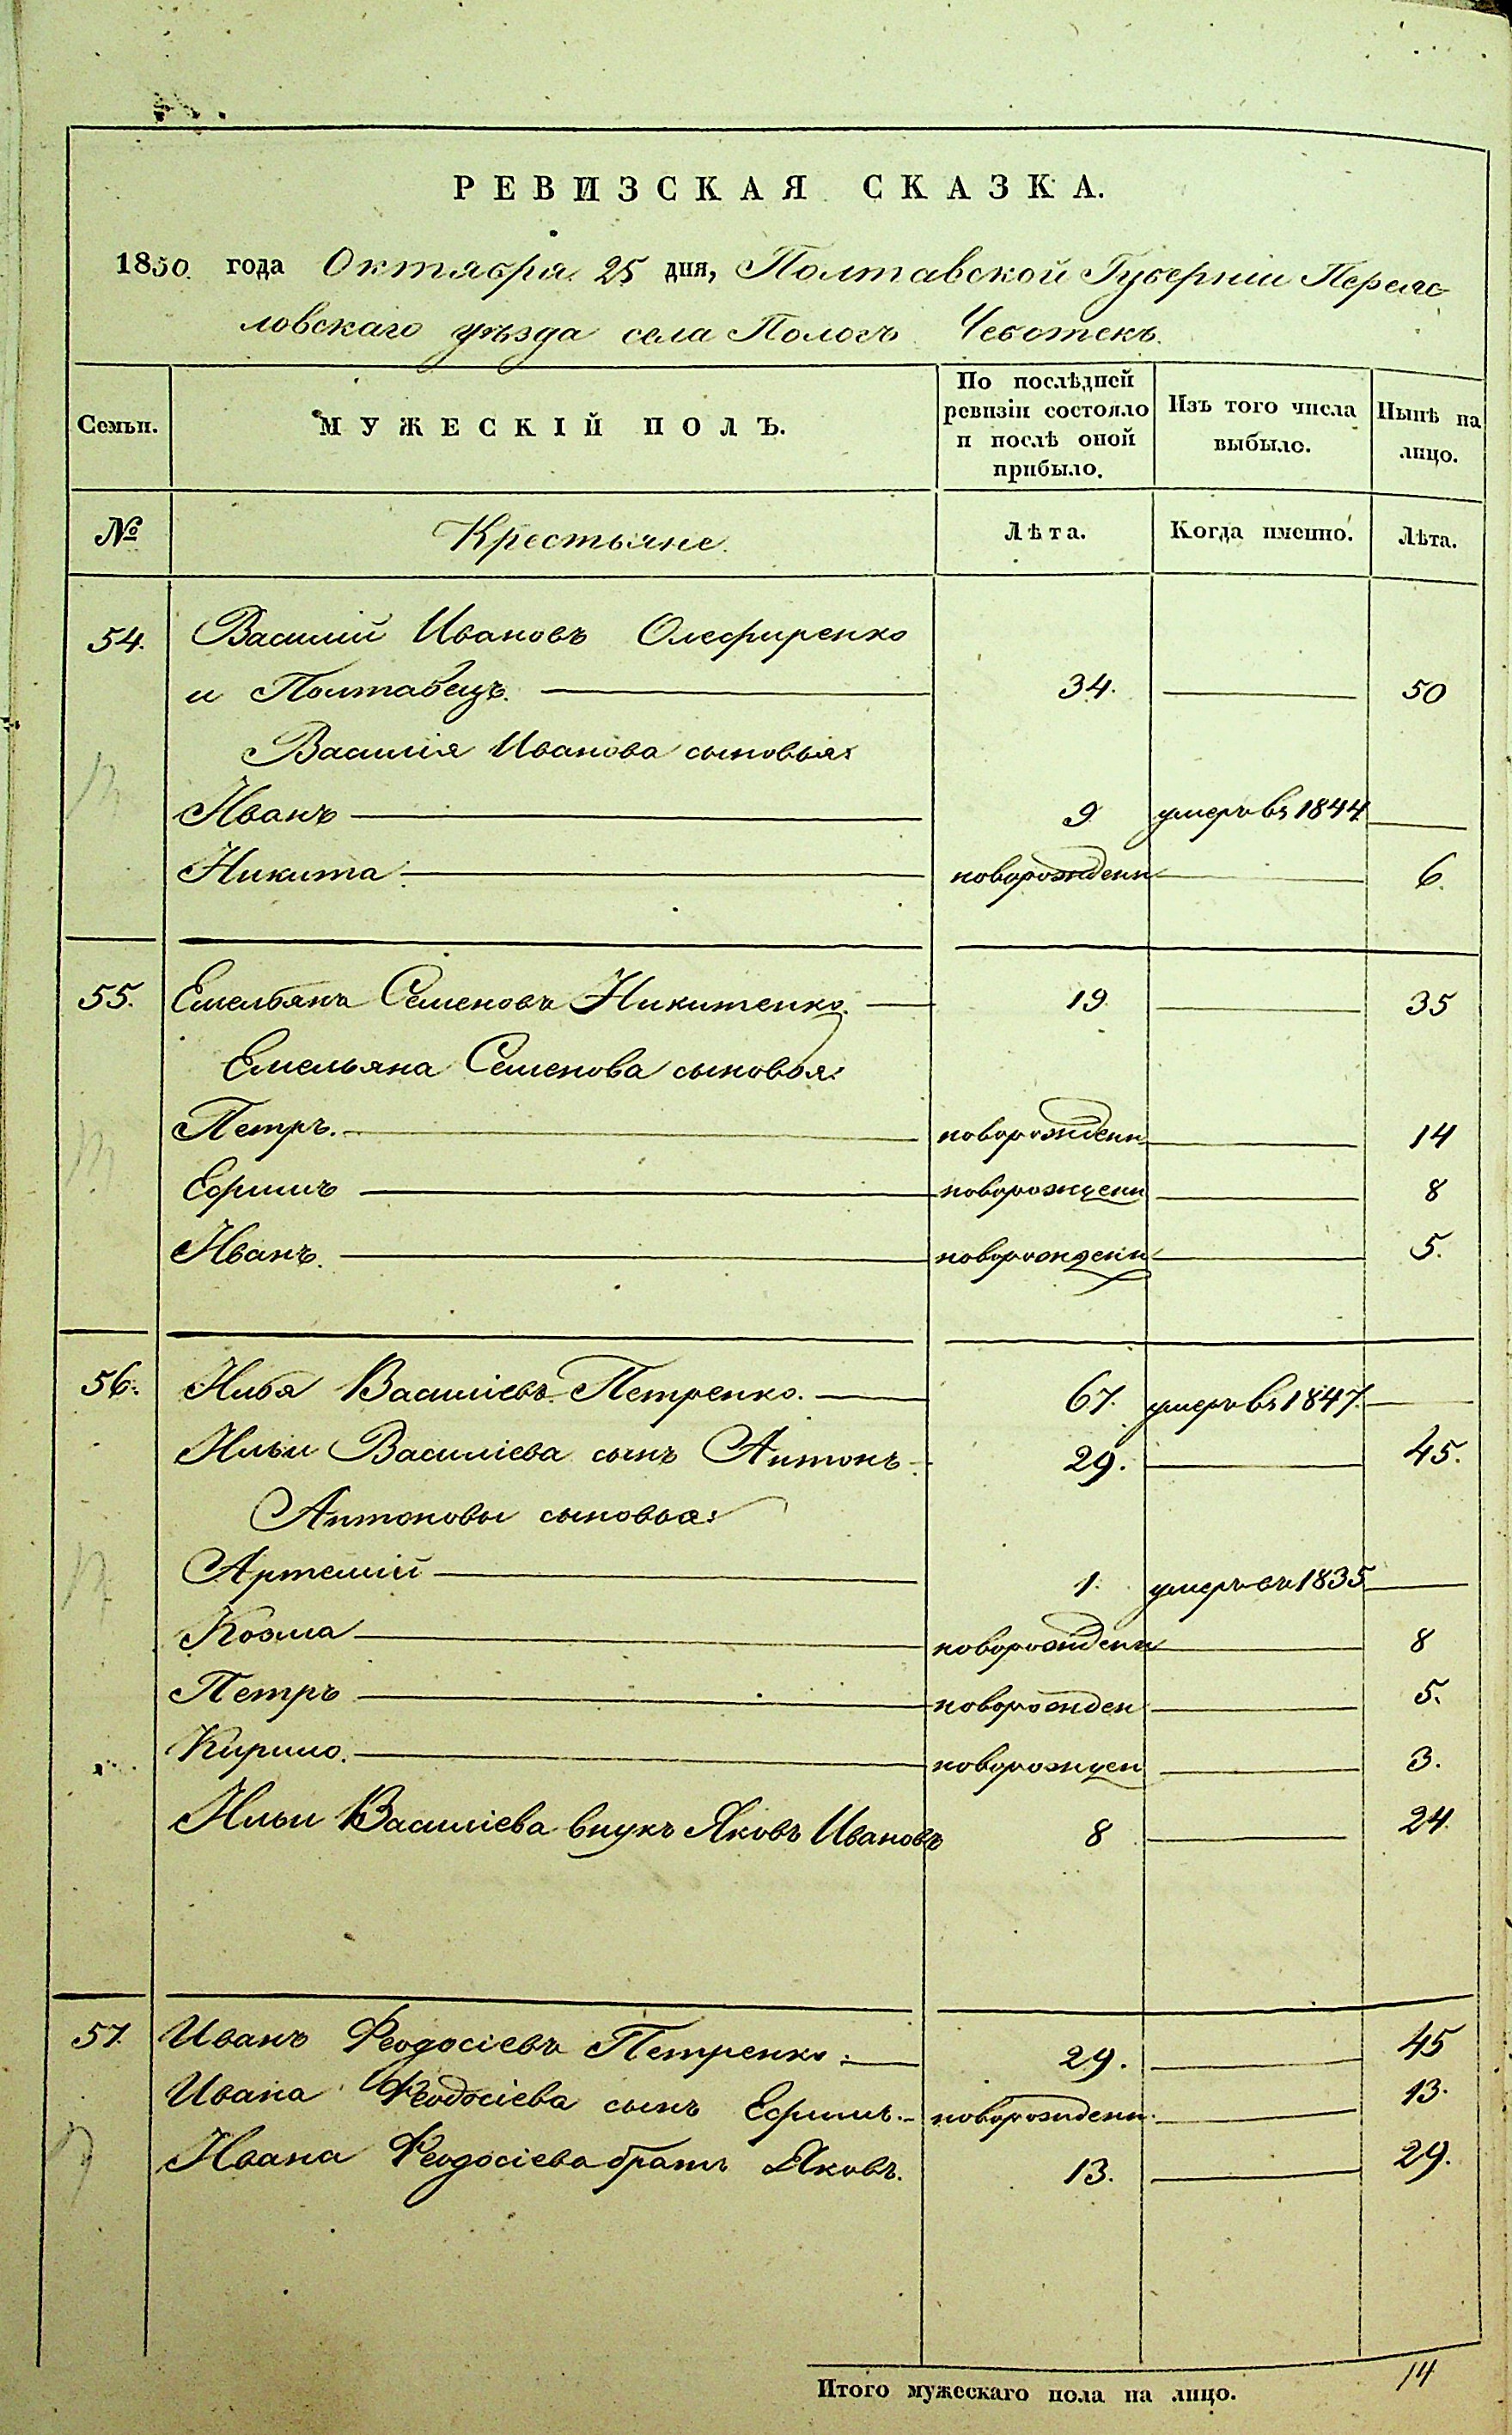 РЕВИЗСКАЯ СКАЗКА.
1850. года Октября 25 дня, Полтавской Губерніи Переяс-
ловскаго уѣзда села Пологъ Чеботекъ.
Семьи.
МУЖЕСКІЙ ПОЛЪ.
По послѣдней ревизіи состояло и послѣ оной прибыло.
Изъ того числа выбыло.
Нынѣ на лицо.
№ Крестьяне. Лѣта. Когда именно. Лѣта.
54. Василій Ивановъ Олефиренко
и Полтавецъ. 34. 50
Василія Иванова сыновья:
Иванъ 9 умеръ въ 1844
Никита новорожденн 6.
55. Емельянъ Семеновъ Никитенко. 19. 35
Емельяна Семенова сыновья:
Петръ. новорожденн 14
Ефимъ новорожденн 8
Иванъ. новорожденн 5.
56. Илья Василіевъ Петренко. 67. умеръ въ 1847.
Ильи Василіева сынъ Антонъ. 29. 45.
Антоновы сыновья:
Артемій 1. умеръ въ 1835
Козма новорожденн 8
Петръ новорожден 5.
Кирило. новорожден 3.
Ильи Василіева внукъ Яковъ Ивановъ 8 24
57. Иванъ Феодосіевъ Петренко. 29. 45
Ивана Феодосіева сынъ Ефимъ. новорожденн. 13.
Ивана Феодосіева братъ Яковъ. 13. 29.
Итого мужескаго пола на лицо. 14